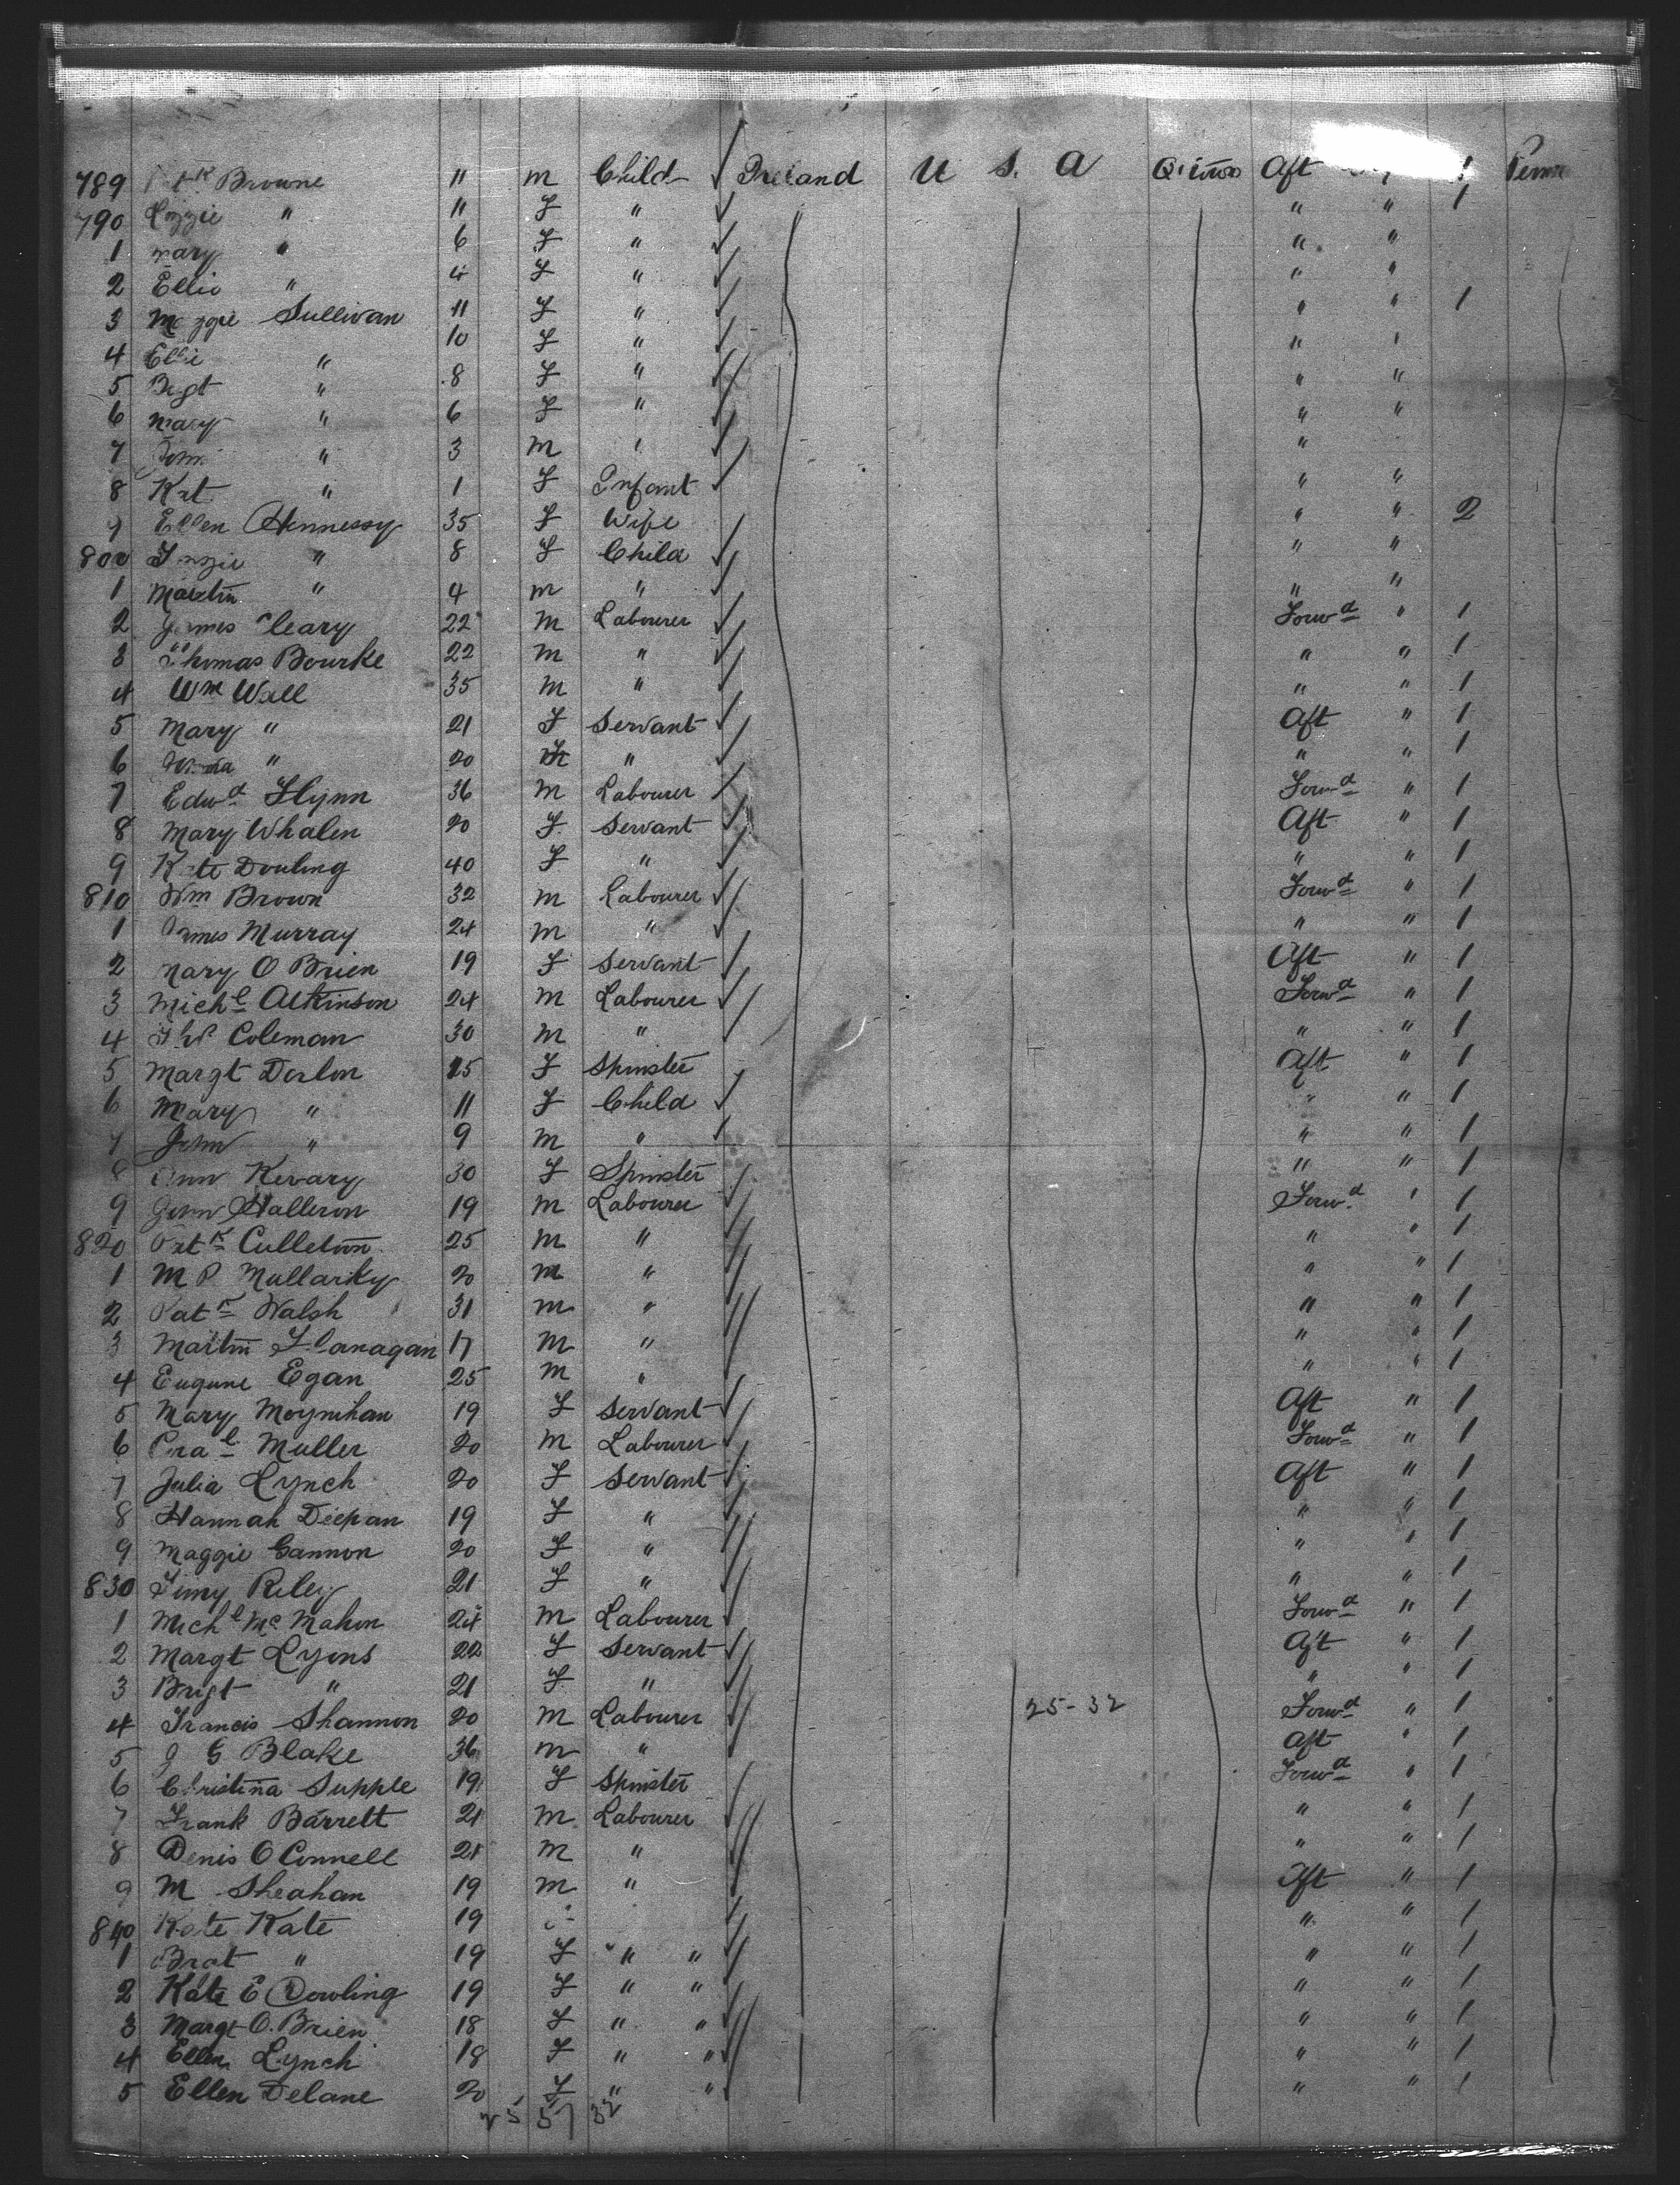 789 Patk Browne 11 m Child Ireland U S. A Q'town Aft 1
790 Lizzie " 11 F " " " 1
1 mary " 6 F " " "
2 Ellie " 4 F " " "
3 Maggie Sullivan 11 F " " " 1
4 Ellie " 10 F " " "
5 Brigt " 8 F " " "
6 mary " 6 F " " "
7 John " 3 m " "
8 Kat " 1 F Infant " "
9 Ellen Hennessy 35 F Wife " " 2
800 " 8 F Child " "
1 Martin " 4 m " " "
2 James Cleary 22 m Labourer Forwd " 1
3 Thomas Bourke 22 m " " " 1
4 Wm Wall 35 m " " " 1
5 Mary " 21 F Servant Aft " 1
6 " 20 " " " 1
7 Edwd Flynn 36 m Labourer Forwd " 1
8 Mary Whalen 20 F Servant Aft " 1
9 Kate Douling 40 F " " " 1
810 Wm Brown 32 m Labourer Forwd " 1
1 James Murray 24 m " " " 1
2 Mary O Brien 19 F Servant Aft " 1
3 Michl Atkinson 24 m Labourer Forwd " 1
4 Coleman 30 m " " " 1
5 Margt Doslon F Spinster Aft " 1
6 Mary " 11 F Child " " 1
7 John " 9 m " " " 1
8 Ann Kevary 30 F Spinster " " 1
9 John Halleron 19 m Labourer Forwd " 1
820 Patk Culleton 25 m " " " 1
1 M P Mullarky 20 m " " " 1
2 Patk Walsh 31 m " " " 1
3 Martin Flanagan 17 m " " " 1
4 Eugune Egan 25 m " " " 1
5 Mary Moynihan 19 F Servant Aft " 1
6 Muller 20 m Labourer Forwd " 1
7 Julia Lynch 20 F Servant Aft " 1
8 Hannah Deehan 19 F " " " 1
9 Maggie Gannon 20 F " " " 1
830 Riley 21 F " " " 1
1 Michl Mc Mahon 24 m Labourer Forwd " 1
2 Margt Lyons 22 F Servant Aft " 1
3 Brigt " 21 F " " " 1
4 Francis Shannon 20 m Labourer 25-32 Forwd " 1
5 J G Blake 36 m " Aft " 1
6 Christina Supple 19 F Spinster Forwd " 1
7 Frank Barrett 21 m Labourer " " 1
8 Denis O Connell 21 m " " " 1
9 M Sheahan 19 m " Aft " 1
840 Kate Kate 19 " " 1
1 " 19 F " " " " 1
2 Kate E Dowling 19 F " " " " 1
3 Margt O. Brien 18 F " " " " 1
4 Ellen Lynch 18 F " " " " 1
5 Ellen Delane 20 F " " " " 1
25 57 32